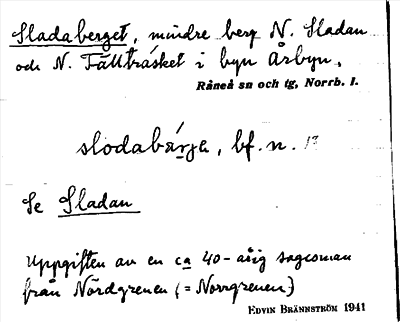 Sladaberget, mindre berg N. Sladan
och N. Fällträsket i byn Årbyn,
Råneå sn och tg, Norrb. l.
slodabärjə, bf. n. 13
Se Sladan
Uppgiften av en ca 40-årig sagesman
från Nördgrenen (= Norrgrenen)
EDVIN BRÄNNSTRÖM 1941